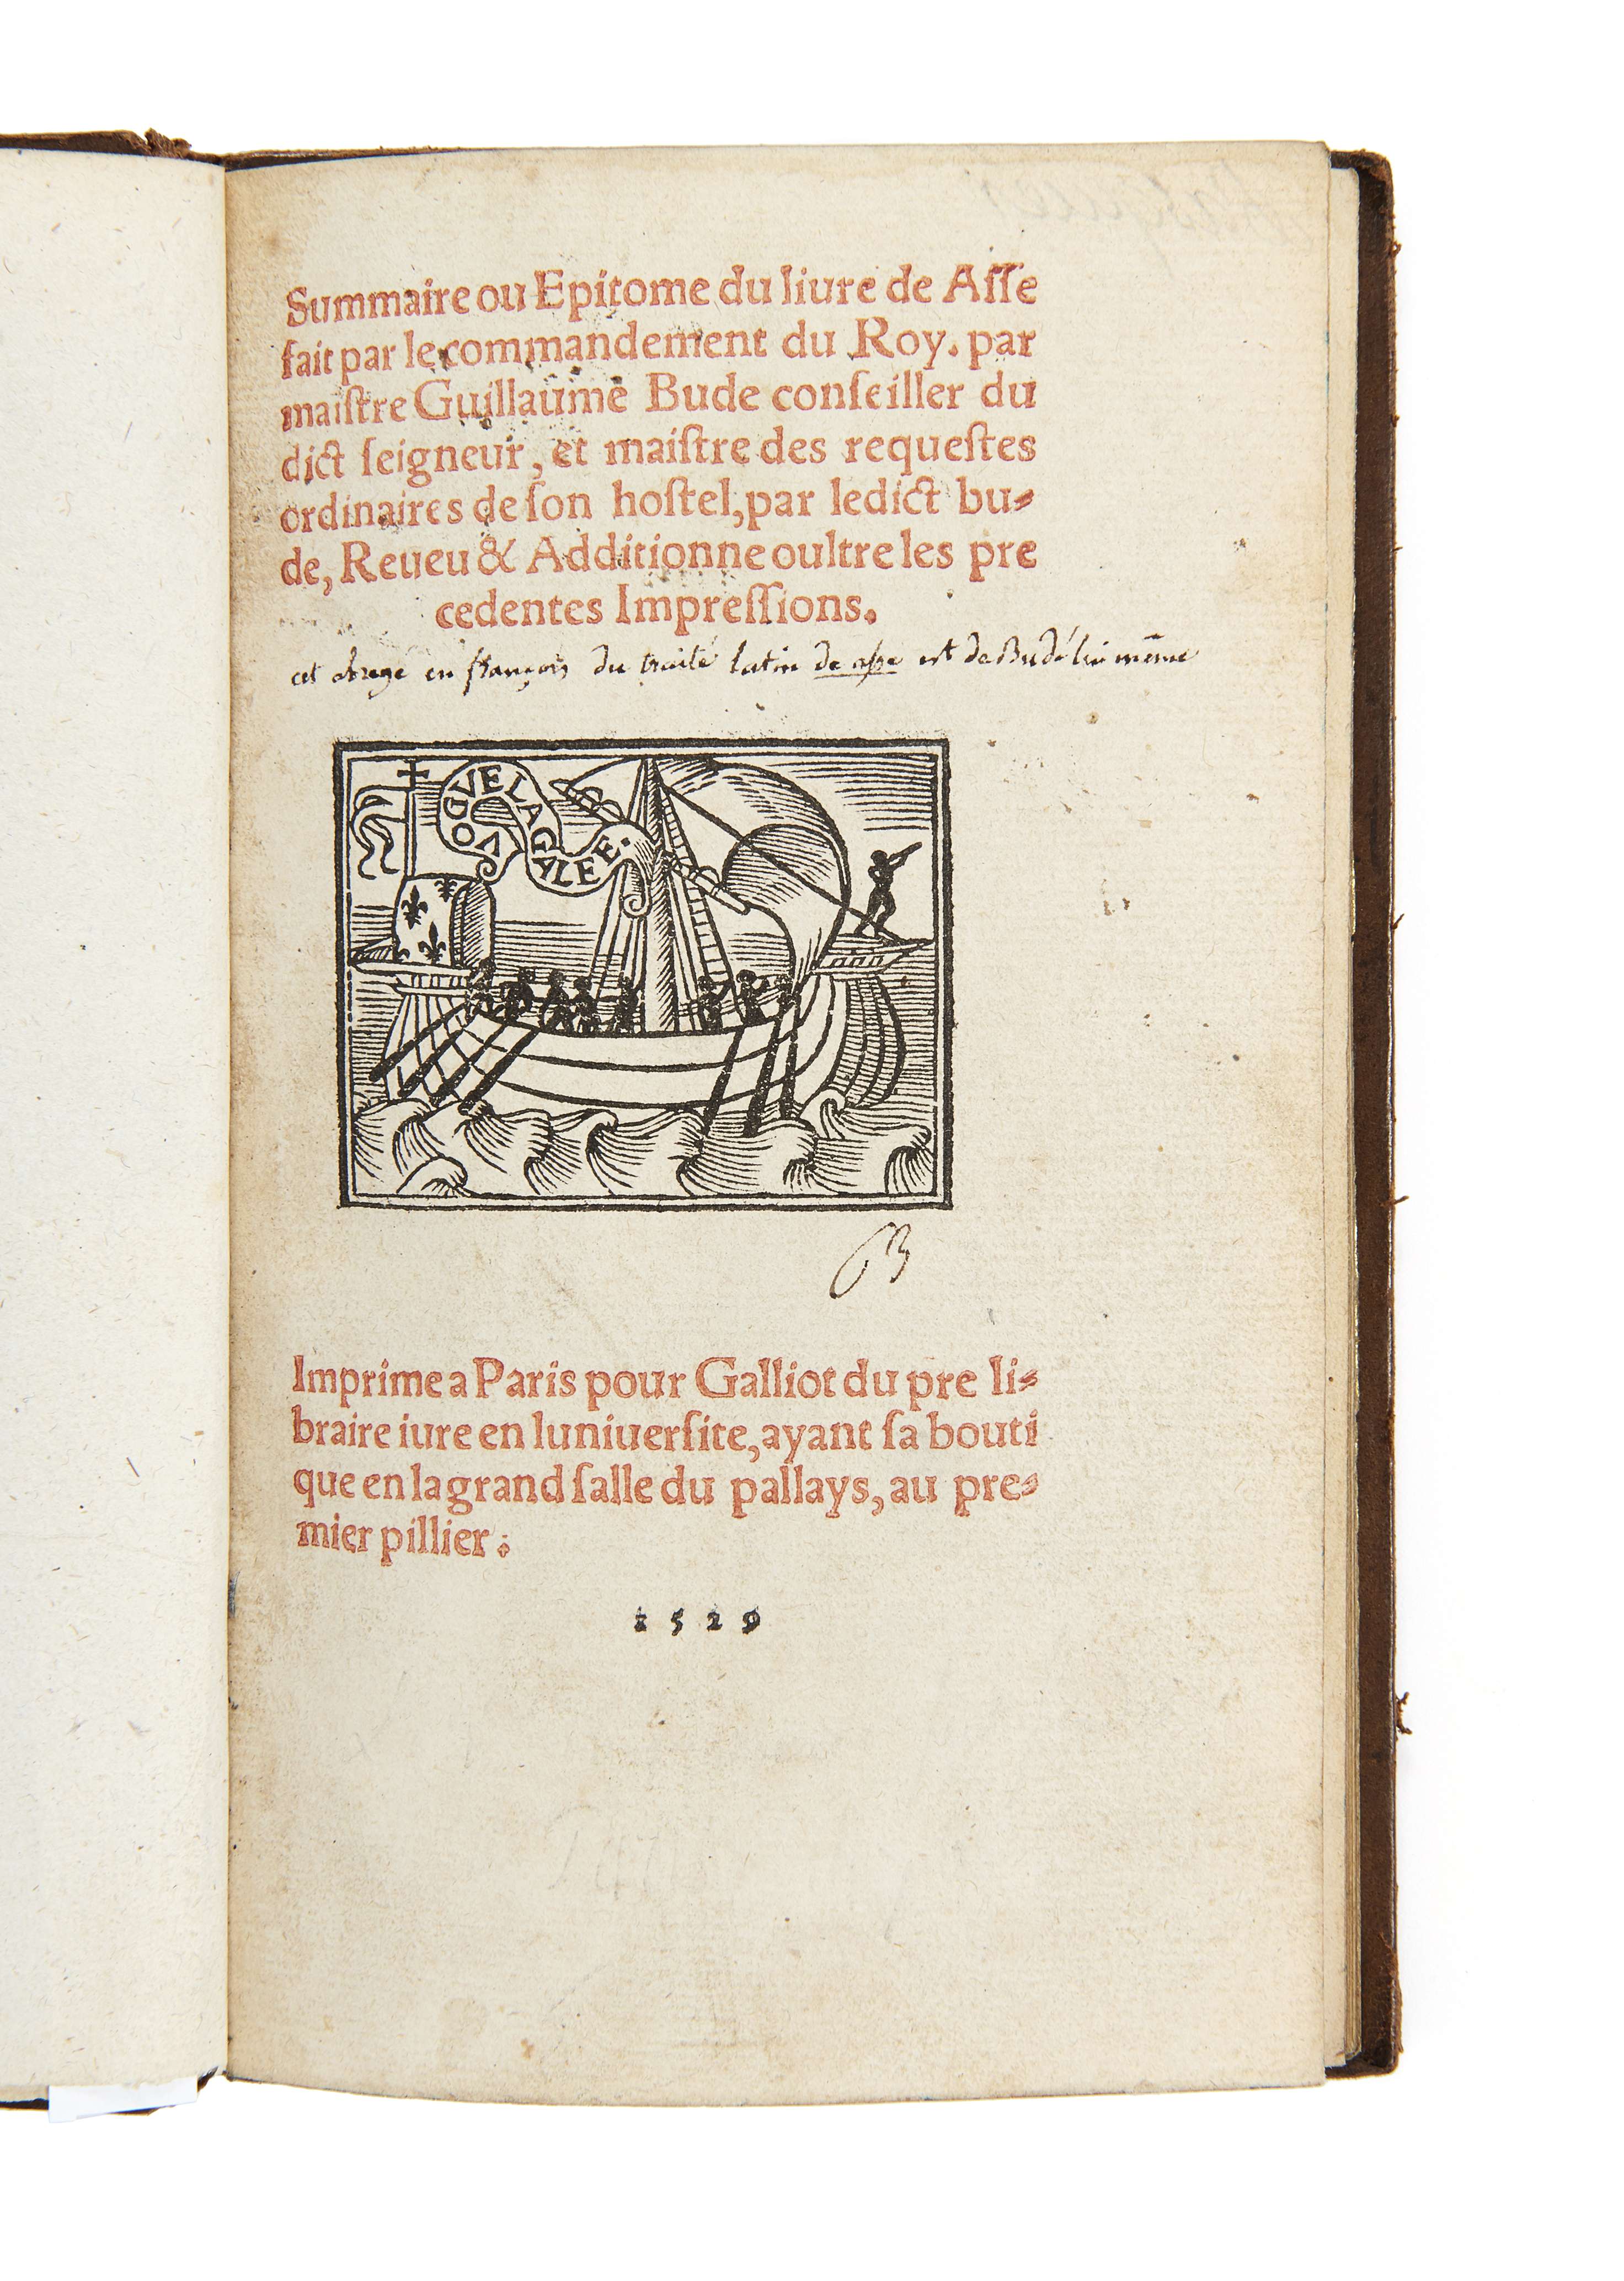 Summaire ou Epitome du liure de Aſſe
fait par le commandement du Roy. par
maiſtre Guillaume Bude conſeiller du
dict ſeigneur, et maiſtre des requeſtes
ordinaires de ſon hoſtel, par ledict bu⸗
de, Reueu & Additionne oultre les pre
cedentes Impreſſions.
cet abrege en françois du traité latin de aſse est de Budé lui même
VOGVE LA GALEE.
B
Imprime a Paris pour Galliot du pre li⸗
braire iure en luniuerſite, ayant ſa bouti
que en la grand ſalle du pallays, au pre⸗
mier pillier:
1529